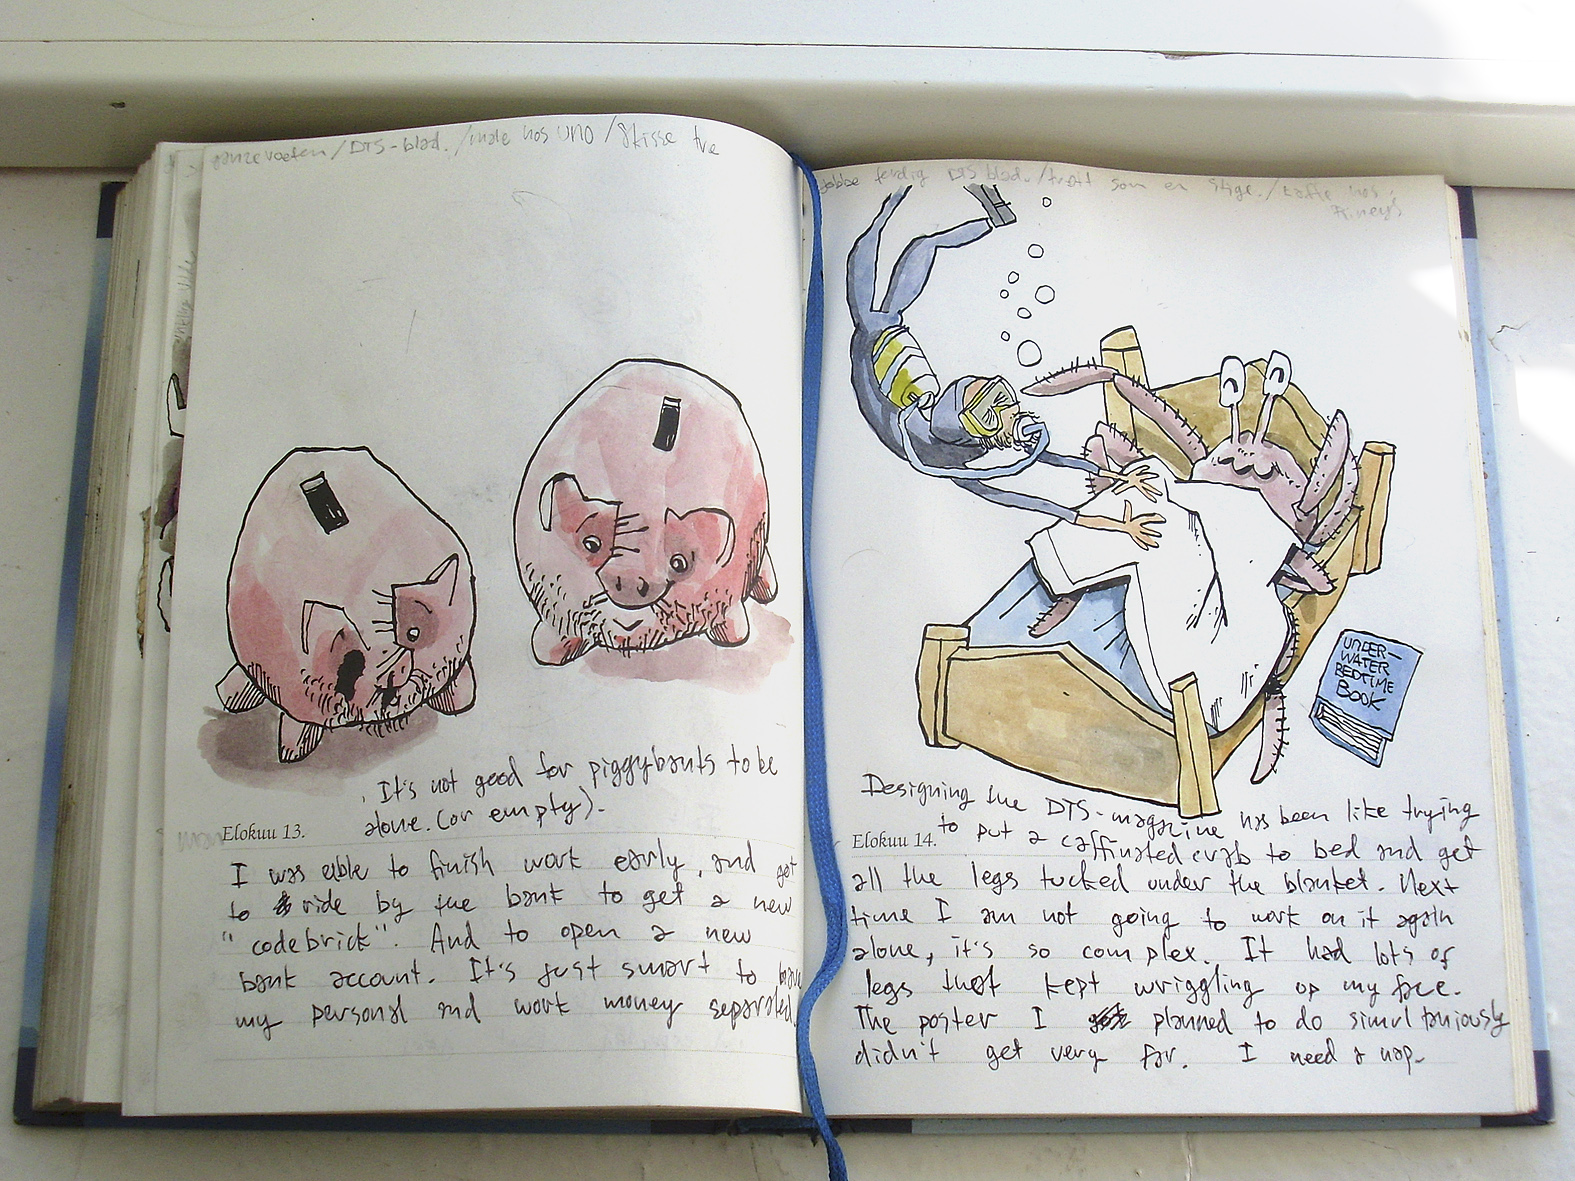 ganzevoeten / DTS-blad. / male hos UNO / Skisse tre
It's not good for piggybanks to be
alone. (or empty).
Elokuu 13.
I was able to finish work early, and got
to ride by the bank to get a new
"codebrick". And to open a new
bank account. It's just smart to have
my personal and work money separated.
jobbe ferdig DTS blad. / trøtt som en stige. / kaffe hos
Finneys
UNDER-
WATER
BEDTIME
BOOK
Designing the DTS-magazine has been like trying
Elokuu 14.
to put a caffinated crab to bed and get
all the legs tucked under the blanket. Next
time I am not going to work on it again
alone, it's so complex. It had lots of
legs that kept wriggling op my face.
The poster I planned to do simultaniously
didn't get very far. I need a nap.